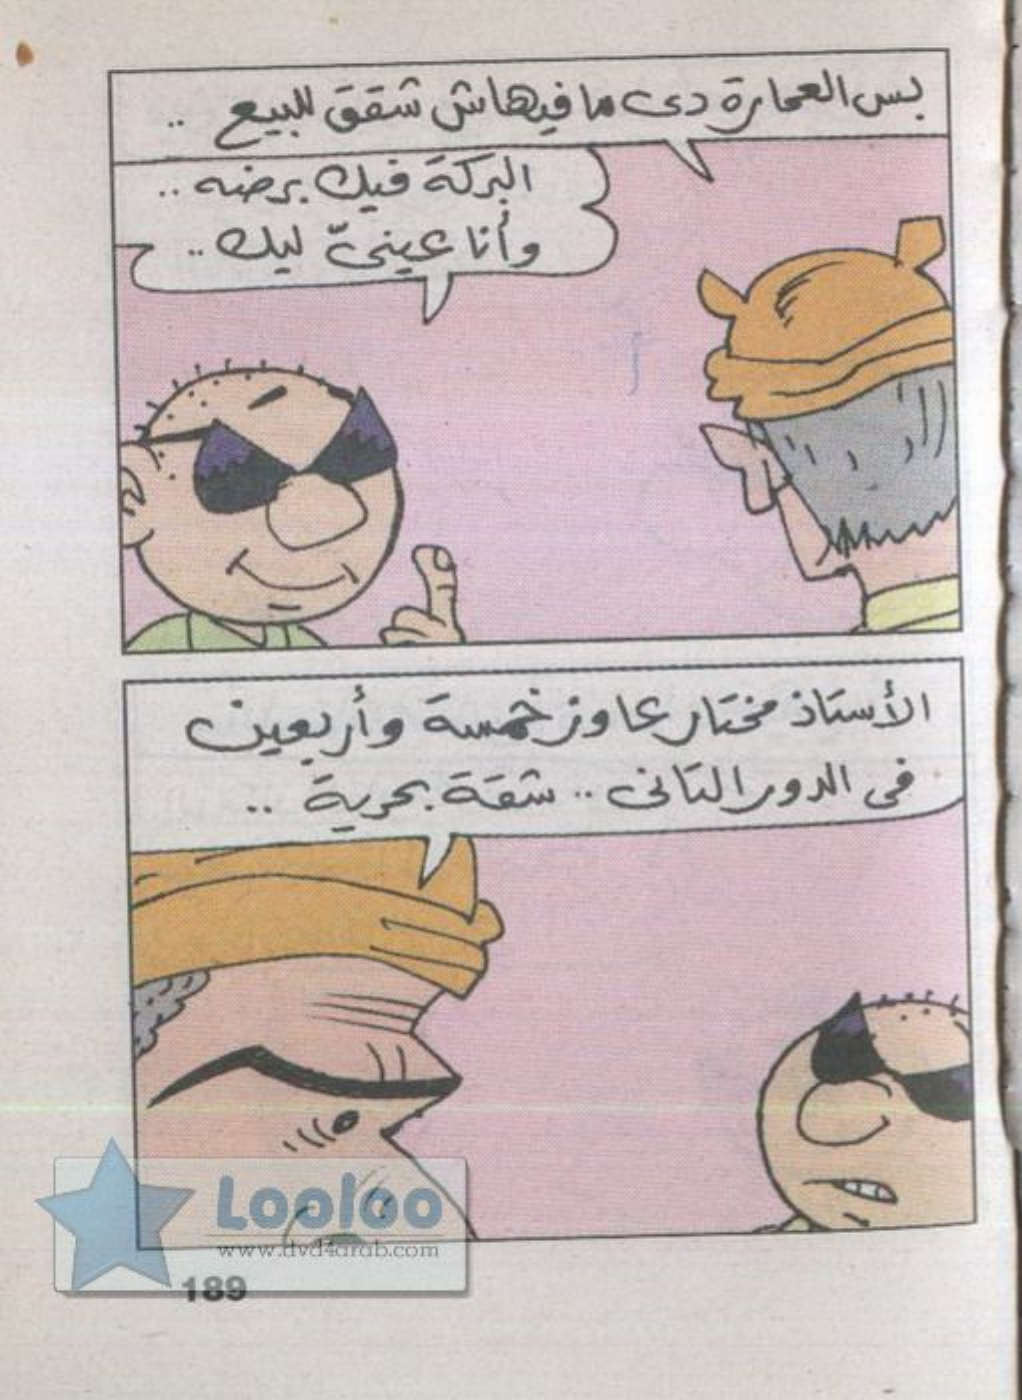 بس العمارة دى ما فيهاش شقق للبيع ..
البركة فيك برضه ..
وأنا عينىّ ليك ..
الأستاذ مختار عاوز خمسة وأربعين
فى الدور التانى .. شقة بحرية ..
Looloo
www.dvd4arab.com
189